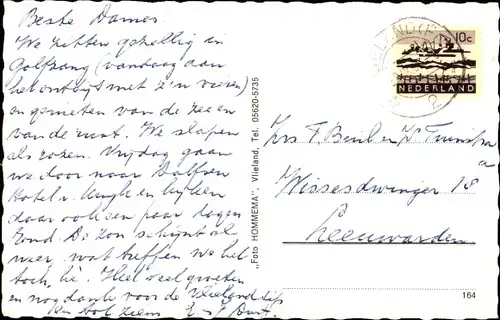 Beste Dames
We zitten gezellig in
Golfzang (vandaag aan
het ontbijt met z'n vieren)
en genieten van de zee en
van de rust. We slapen
als rozen. Vrijdag gaan
we door naar Dalfsen
Hotel v. en kijken
daar ook een paar dagen
rond. De zon schijnt al
weer, wat treffen we het
toch, hè. Heel veel groeten
en nog dank voor de Vlielandtip
"Foto HOMMEMA", Vlieland, Tel. 05620-5735
10c
NEDERLAND
2
Wissesdwinger 18
Leeuwarden
164